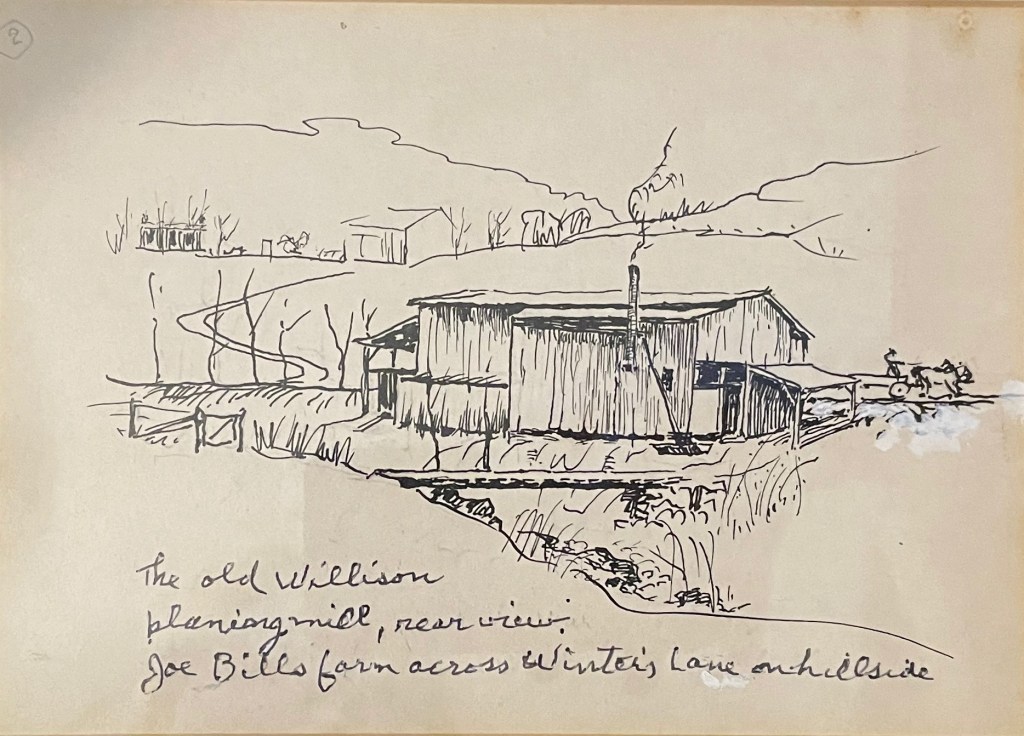 2
The old Willison
planing mill, rear view.
Joe Bills farm across Winter's Lane on hillside